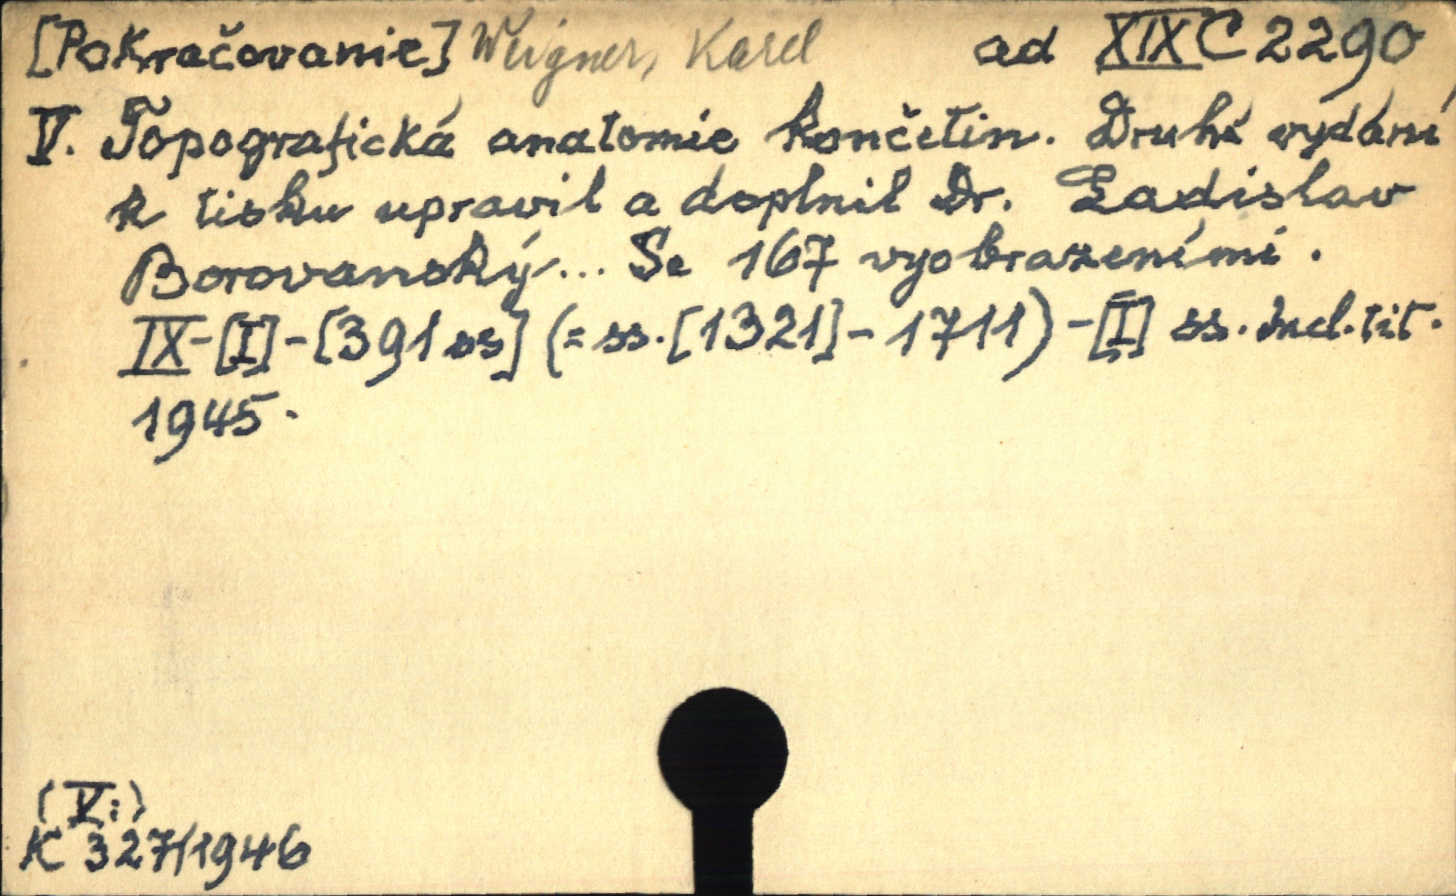 [Pokračovanie] Weigner, Karel ad XIX C 2290
V. Topografická anatomie končetin. Druhé vydání
k tisku upravil a doplnil Dr. Ladislav
Borovanský... Se 167 vyobrazeními.
IX-[I]-[391 ss] (= ss. [1321]-1711)-[I] ss. incl. tit.
1945.
(V:)
K 327/1946